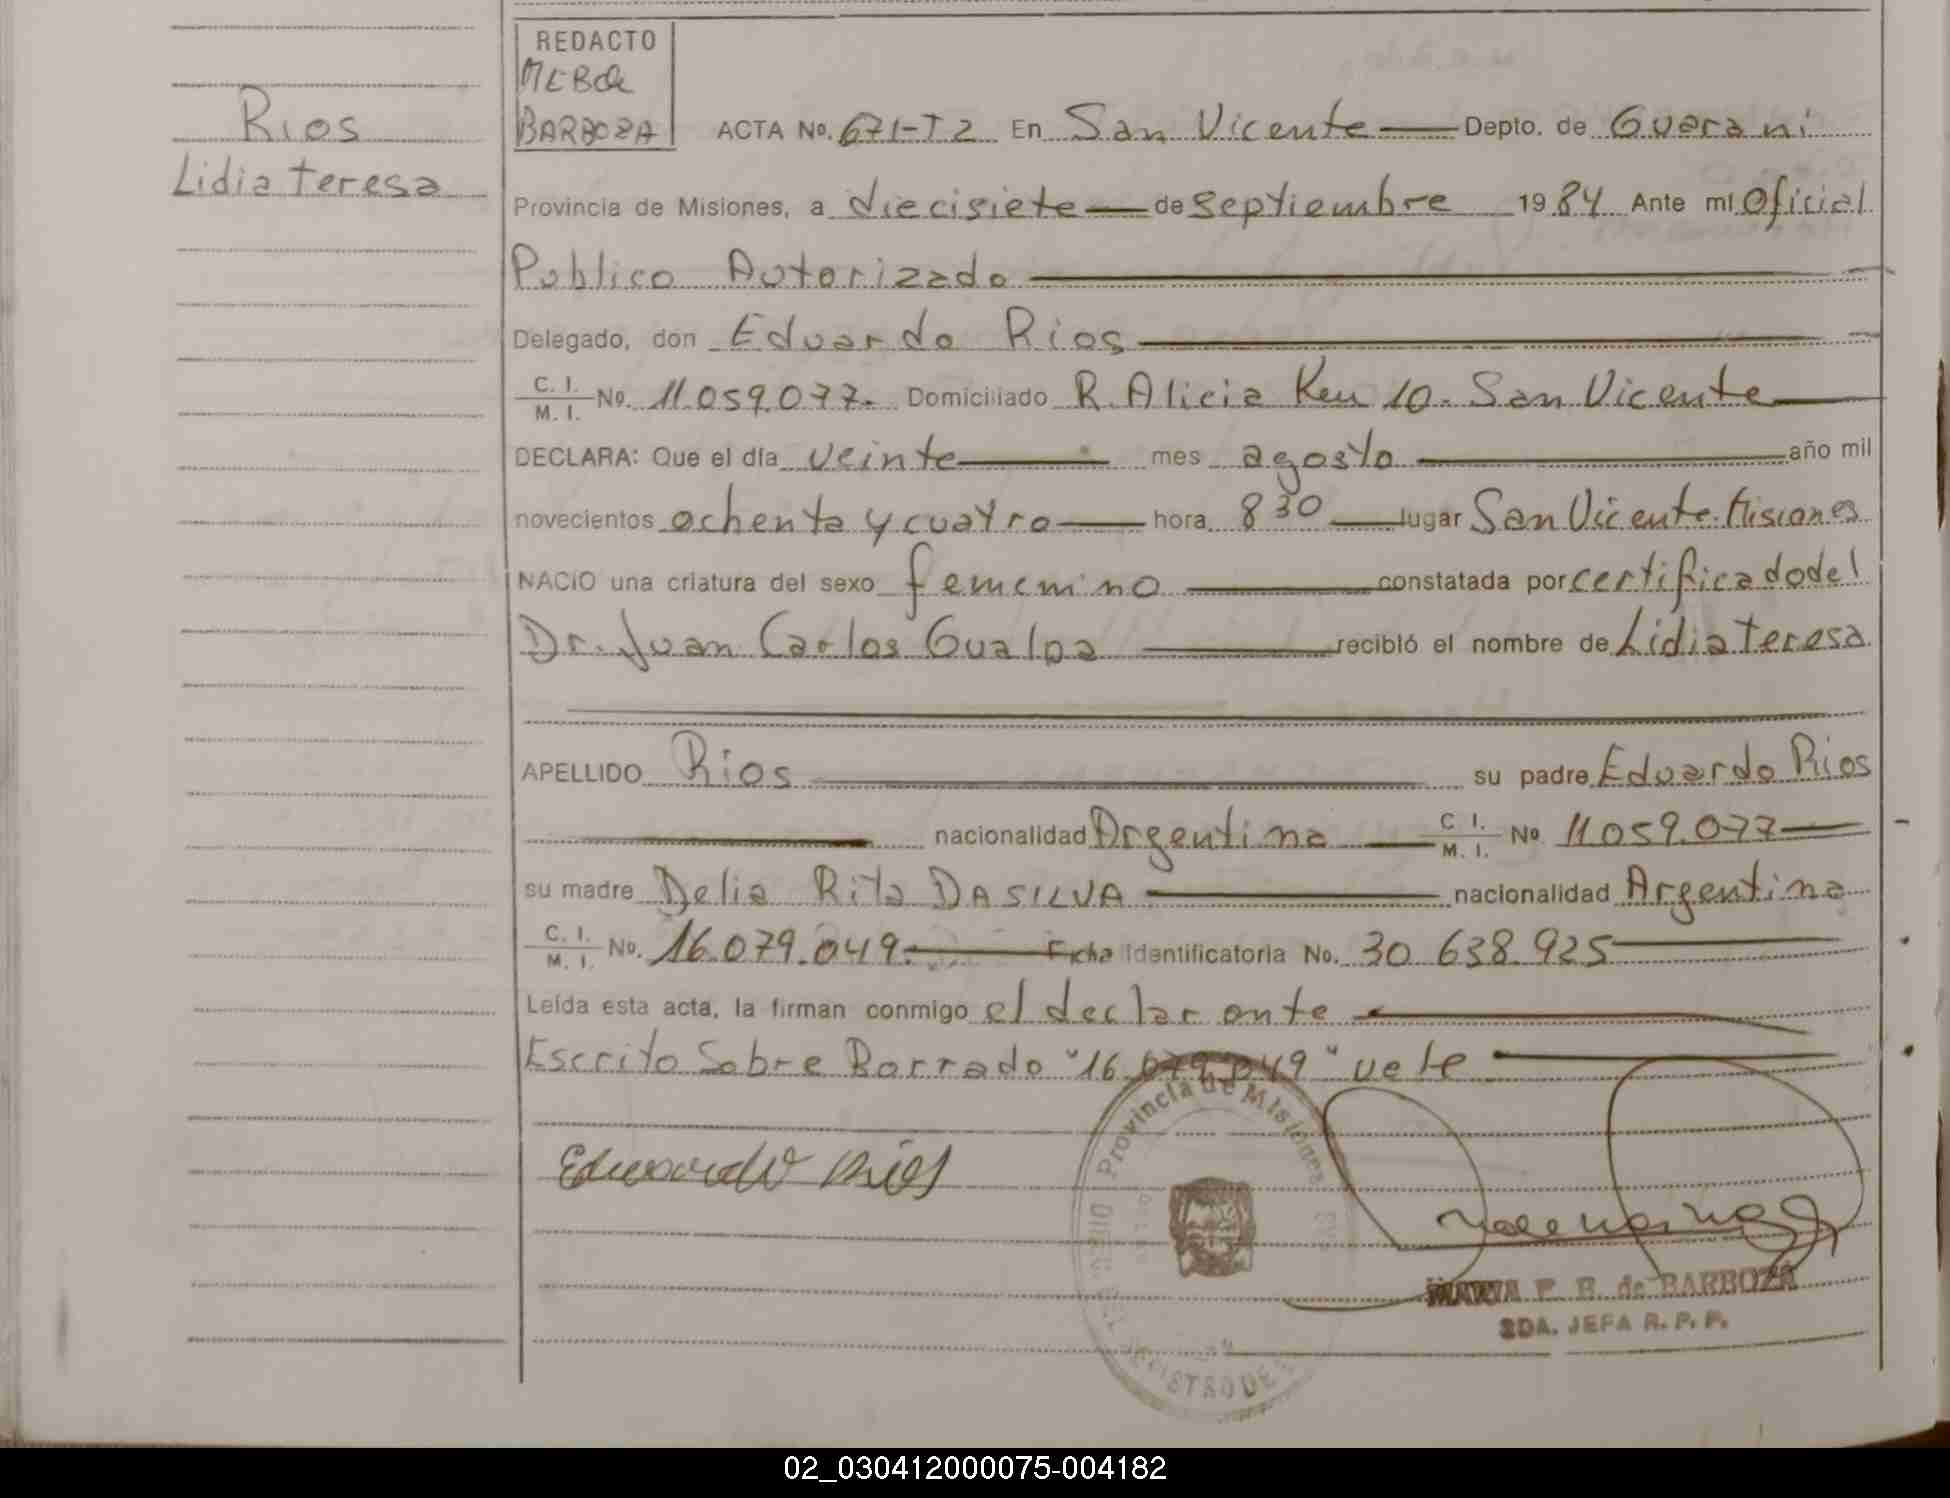 Rios
Lidia teresa
REDACTO
MEBde
BARBOZA
ACTA No. 671-T2 En San Vicente Depto. de Guarani
Provincia de Misiones, a diecisiete de septiembre 1984 Ante mí Oficial
Publico Autorizado
Delegado, don Eduardo Rios
C. I. / M. I. No. 11.059.077. Domiciliado R. Alicia Km 10. San Vicente
DECLARA: Que el día veinte mes agosto año mil
novecientos ochenta y cuatro hora 8 30 lugar San Vicente. Misiones
NACIO una criatura del sexo femenino constatada por certificado del
Dr. Juan Carlos Gualpa recibió el nombre de Lidia teresa
APELLIDO Rios su padre Eduardo Rios
nacionalidad Argentina C. I. / M. I. No 11.059.077
su madre Delia Rita DA SILVA nacionalidad Argentina
C. I. / M. I. No. 16.079.049. Ficha Identificatoria No. 30 638.925
Leída esta acta, la firman conmigo el declarante
Escrito Sobre Borrado "16.079.049" vale
Eduardo Rios
Provincia de Misiones
MARIA E. B. de BARBOZA
2DA. JEFA R. P. P.
02_030412000075-004182